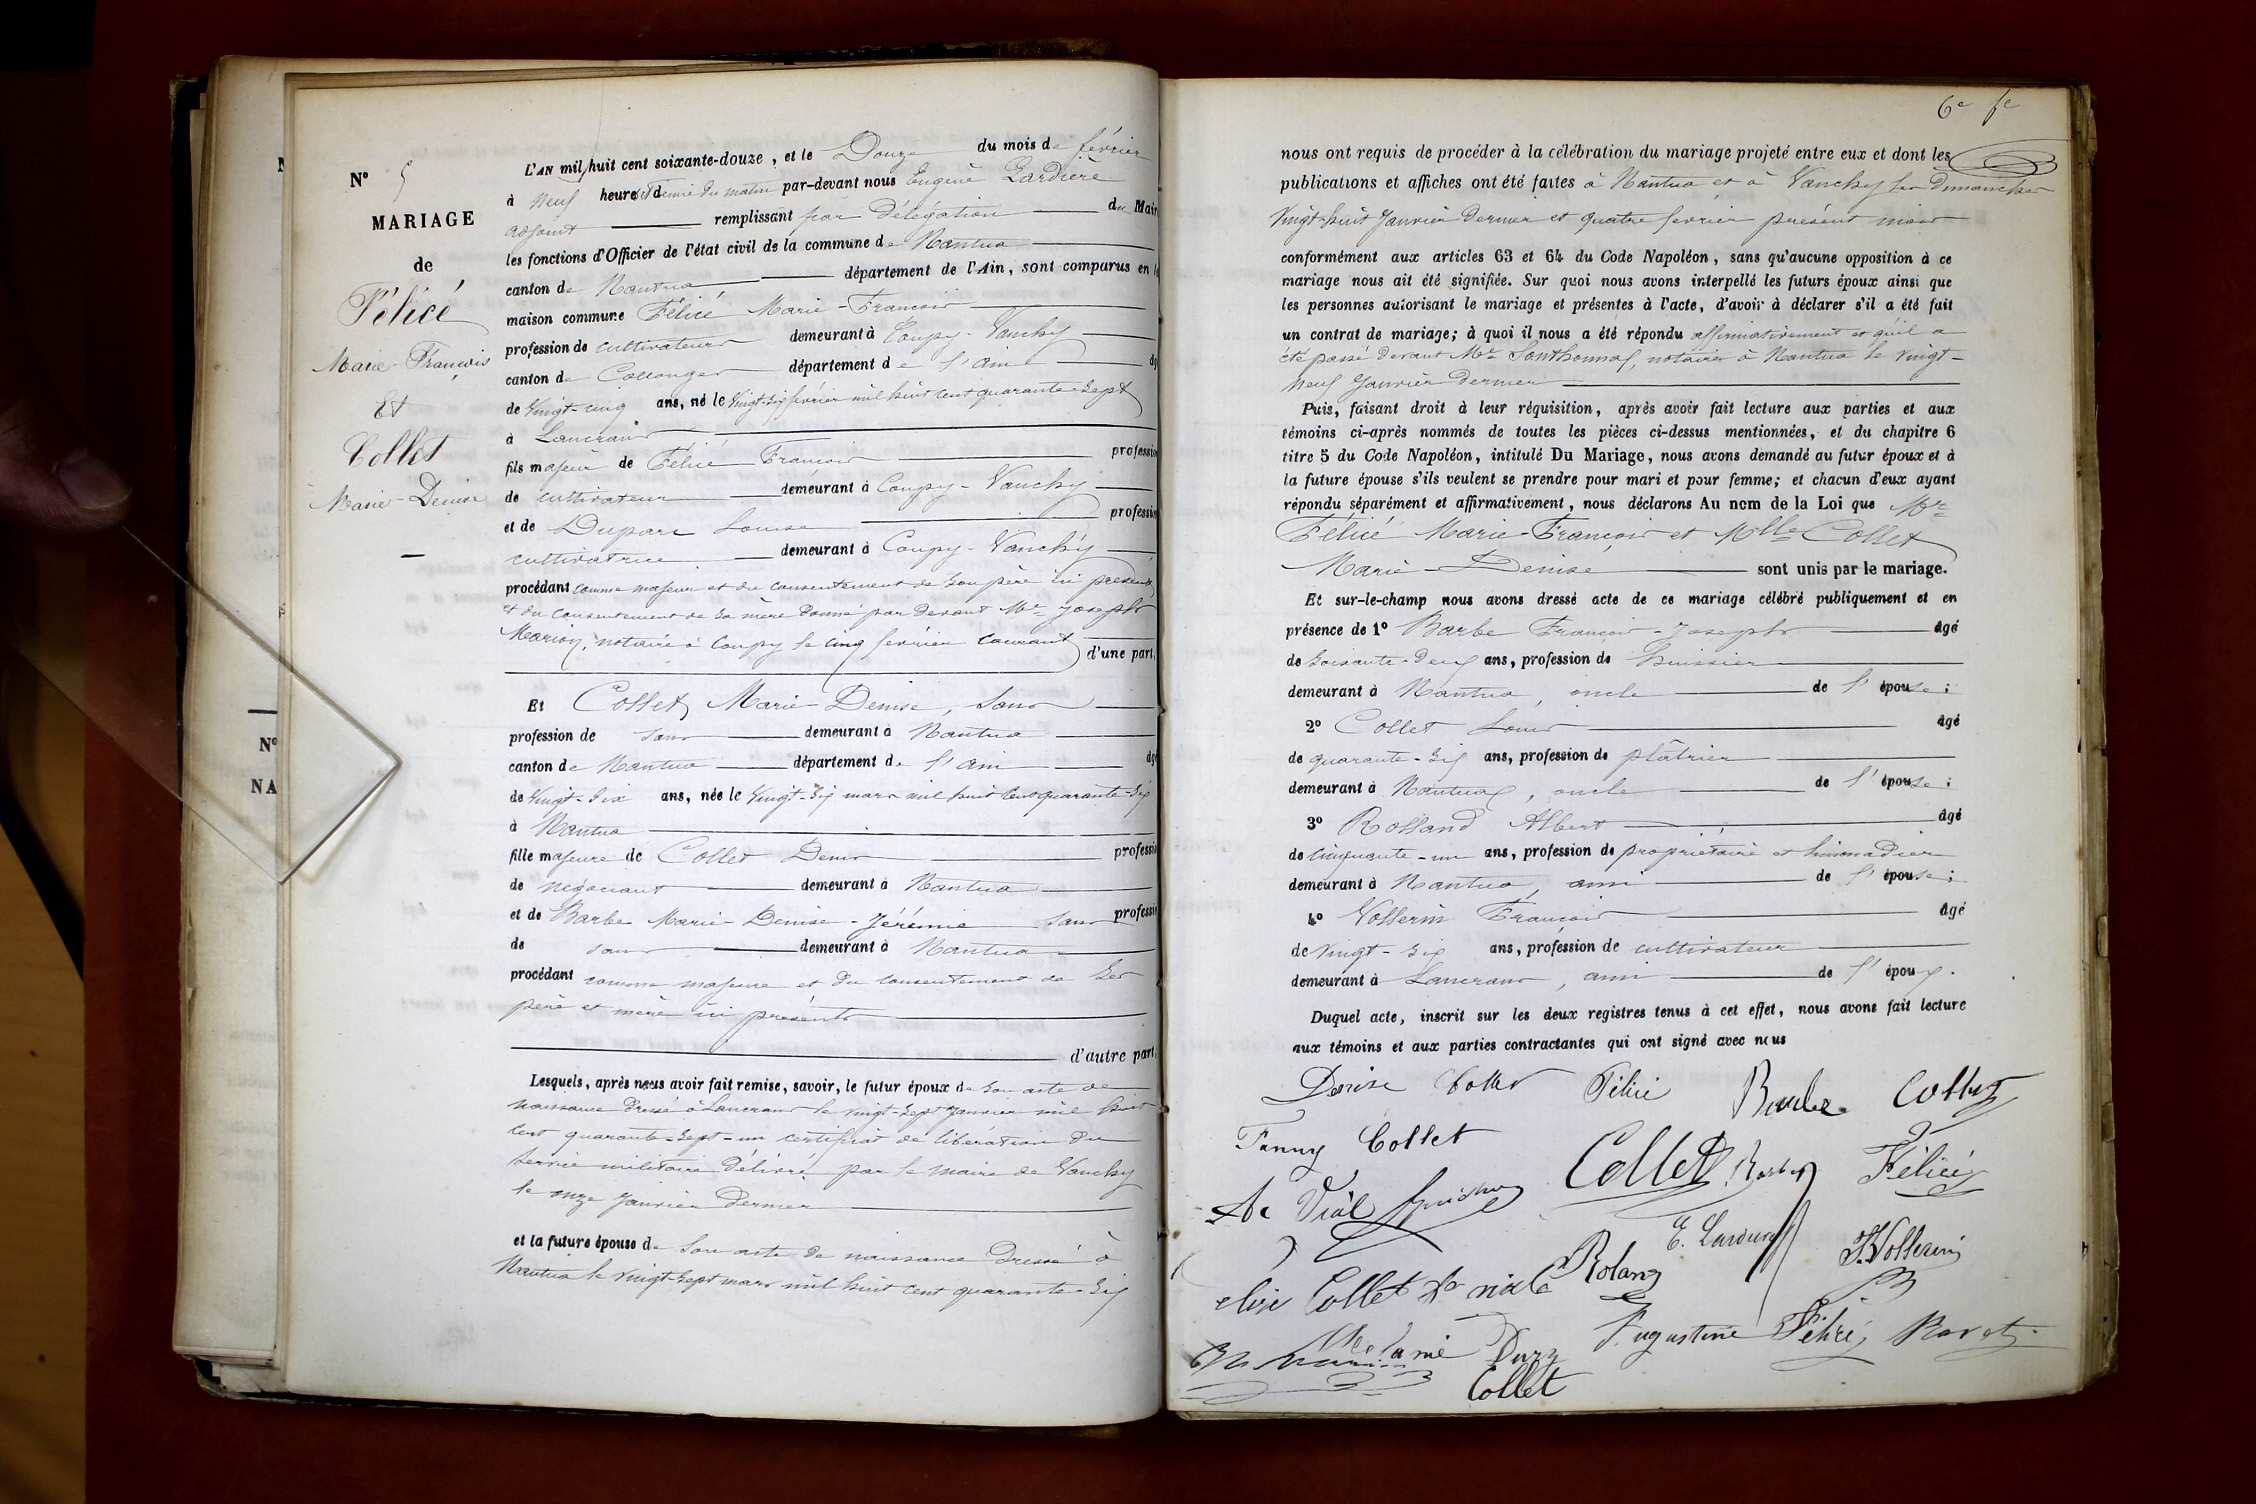 N° 5
MARIAGE
de
Félicé
Marie-François
Et
Collet
Marie-Denise
L'AN mil huit cent soixante-douze, et le Douze du mois de février
à neuf heures et demie du matin par-devant nous Eugène Lardière
adjoint remplissant par Délégation du Maire
les fonctions d'Officier de l'état civil de la commune de Nantua
canton de Nantua département de l'Ain, sont comparus en la
maison commune Félicé Marie-François
profession de cultivateur demeurant à Coupy-Vanchy
canton de Collonges département de l'ain âgé
de vingt-cinq ans, né le vingt-six février mil huit cent quarante-sept
à Lancrans
fils majeur de Félicé François profession
de cultivateur demeurant à Coupy-Vanchy
et de Duparc Louise profession
cultivatrice demeurant à Coupy-Vanchy
procédant comme majeur et du consentement de son père ici présent,
et du consentement de sa mère donné par devant Me Joseph
Marion, notaire à Coupy le cinq février courant
d'une part,
Et Collet, Marie-Denise, sans
profession de sans demeurant à Nantua
canton de Nantua département de l'ain âgé
de vingt-six ans, née le vingt-six mars mil huit cent quarante-six
à Nantua
fille majeure de Collet Denis profession
de négociant demeurant à Nantua
et de Barbe Marie-Denise-Jérémie sans profession
de sans demeurant à Nantua
procédant comme majeure et du consentement de ses
père et mère ici présents
d'autre part,
Lesquels, après nous avoir fait remise, savoir, le futur époux de son acte de
naissance dressé à Lancrans le vingt-sept janvier mil huit
cent quarante-sept - un certificat de libération du
service militaire délivré par le maire de Vanchy
le onze janvier dernier
et la future épouse de son acte de naissance dressé à
Nantua le vingt-sept mars mil huit cent quarante-six
6e fe
nous ont requis de procéder à la célébration du mariage projeté entre eux et dont les
publications et affiches ont été faites à Nantua et à Vanchy les dimanches
vingt-huit janvier dernier et quatre février présent mois
conformément aux articles 63 et 64 du Code Napoléon, sans qu'aucune opposition à ce
mariage nous ait été signifiée. Sur quoi nous avons interpellé les futurs époux ainsi que
les personnes autorisant le mariage et présentes à l'acte, d'avoir à déclarer s'il a été fait
un contrat de mariage; à quoi il nous a été répondu affirmativement et qu'il a
été passé devant Me Southonnax, notaire à Nantua le vingt-
neuf janvier dernier
Puis, faisant droit à leur réquisition, après avoir fait lecture aux parties et aux
témoins ci-après nommés de toutes les pièces ci-dessus mentionnées, et du chapitre 6
titre 5 du Code Napoléon, intitulé Du Mariage, nous avons demandé au futur époux et à
la future épouse s'ils veulent se prendre pour mari et pour femme; et chacun d'eux ayant
répondu séparément et affirmativement, nous déclarons Au nom de la Loi que Mr
Félicé Marie-François et Mlle Collet
Marie-Denise sont unis par le mariage.
Et sur-le-champ nous avons dressé acte de ce mariage célébré publiquement et en
présence de 1° Barbe François-Joseph âgé
de soixante-deux ans, profession de huissier
demeurant à Nantua, oncle de l'épouse;
2° Collet Louis âgé
de quarante-six ans, profession de plâtrier
demeurant à Nantua, oncle de l'épouse;
3° Rolland Albert âgé
de cinquante-un ans, profession de propriétaire et limonadier
demeurant à Nantua, ami de l'épouse;
4° Vollerin François âgé
de vingt-six ans, profession de cultivateur
demeurant à Lancrans, ami de l'époux.
Duquel acte, inscrit sur les deux registres tenus à cet effet, nous avons fait lecture
aux témoins et aux parties contractantes qui ont signé avec nous
Denise Collet Félicé Barbe Collet
Fanny Collet Collet Félicé
Vial
E. Lardière Vollerin
elise Collet Roland
Melanie Augustine Félicé Ravet
Collet
N°
NA